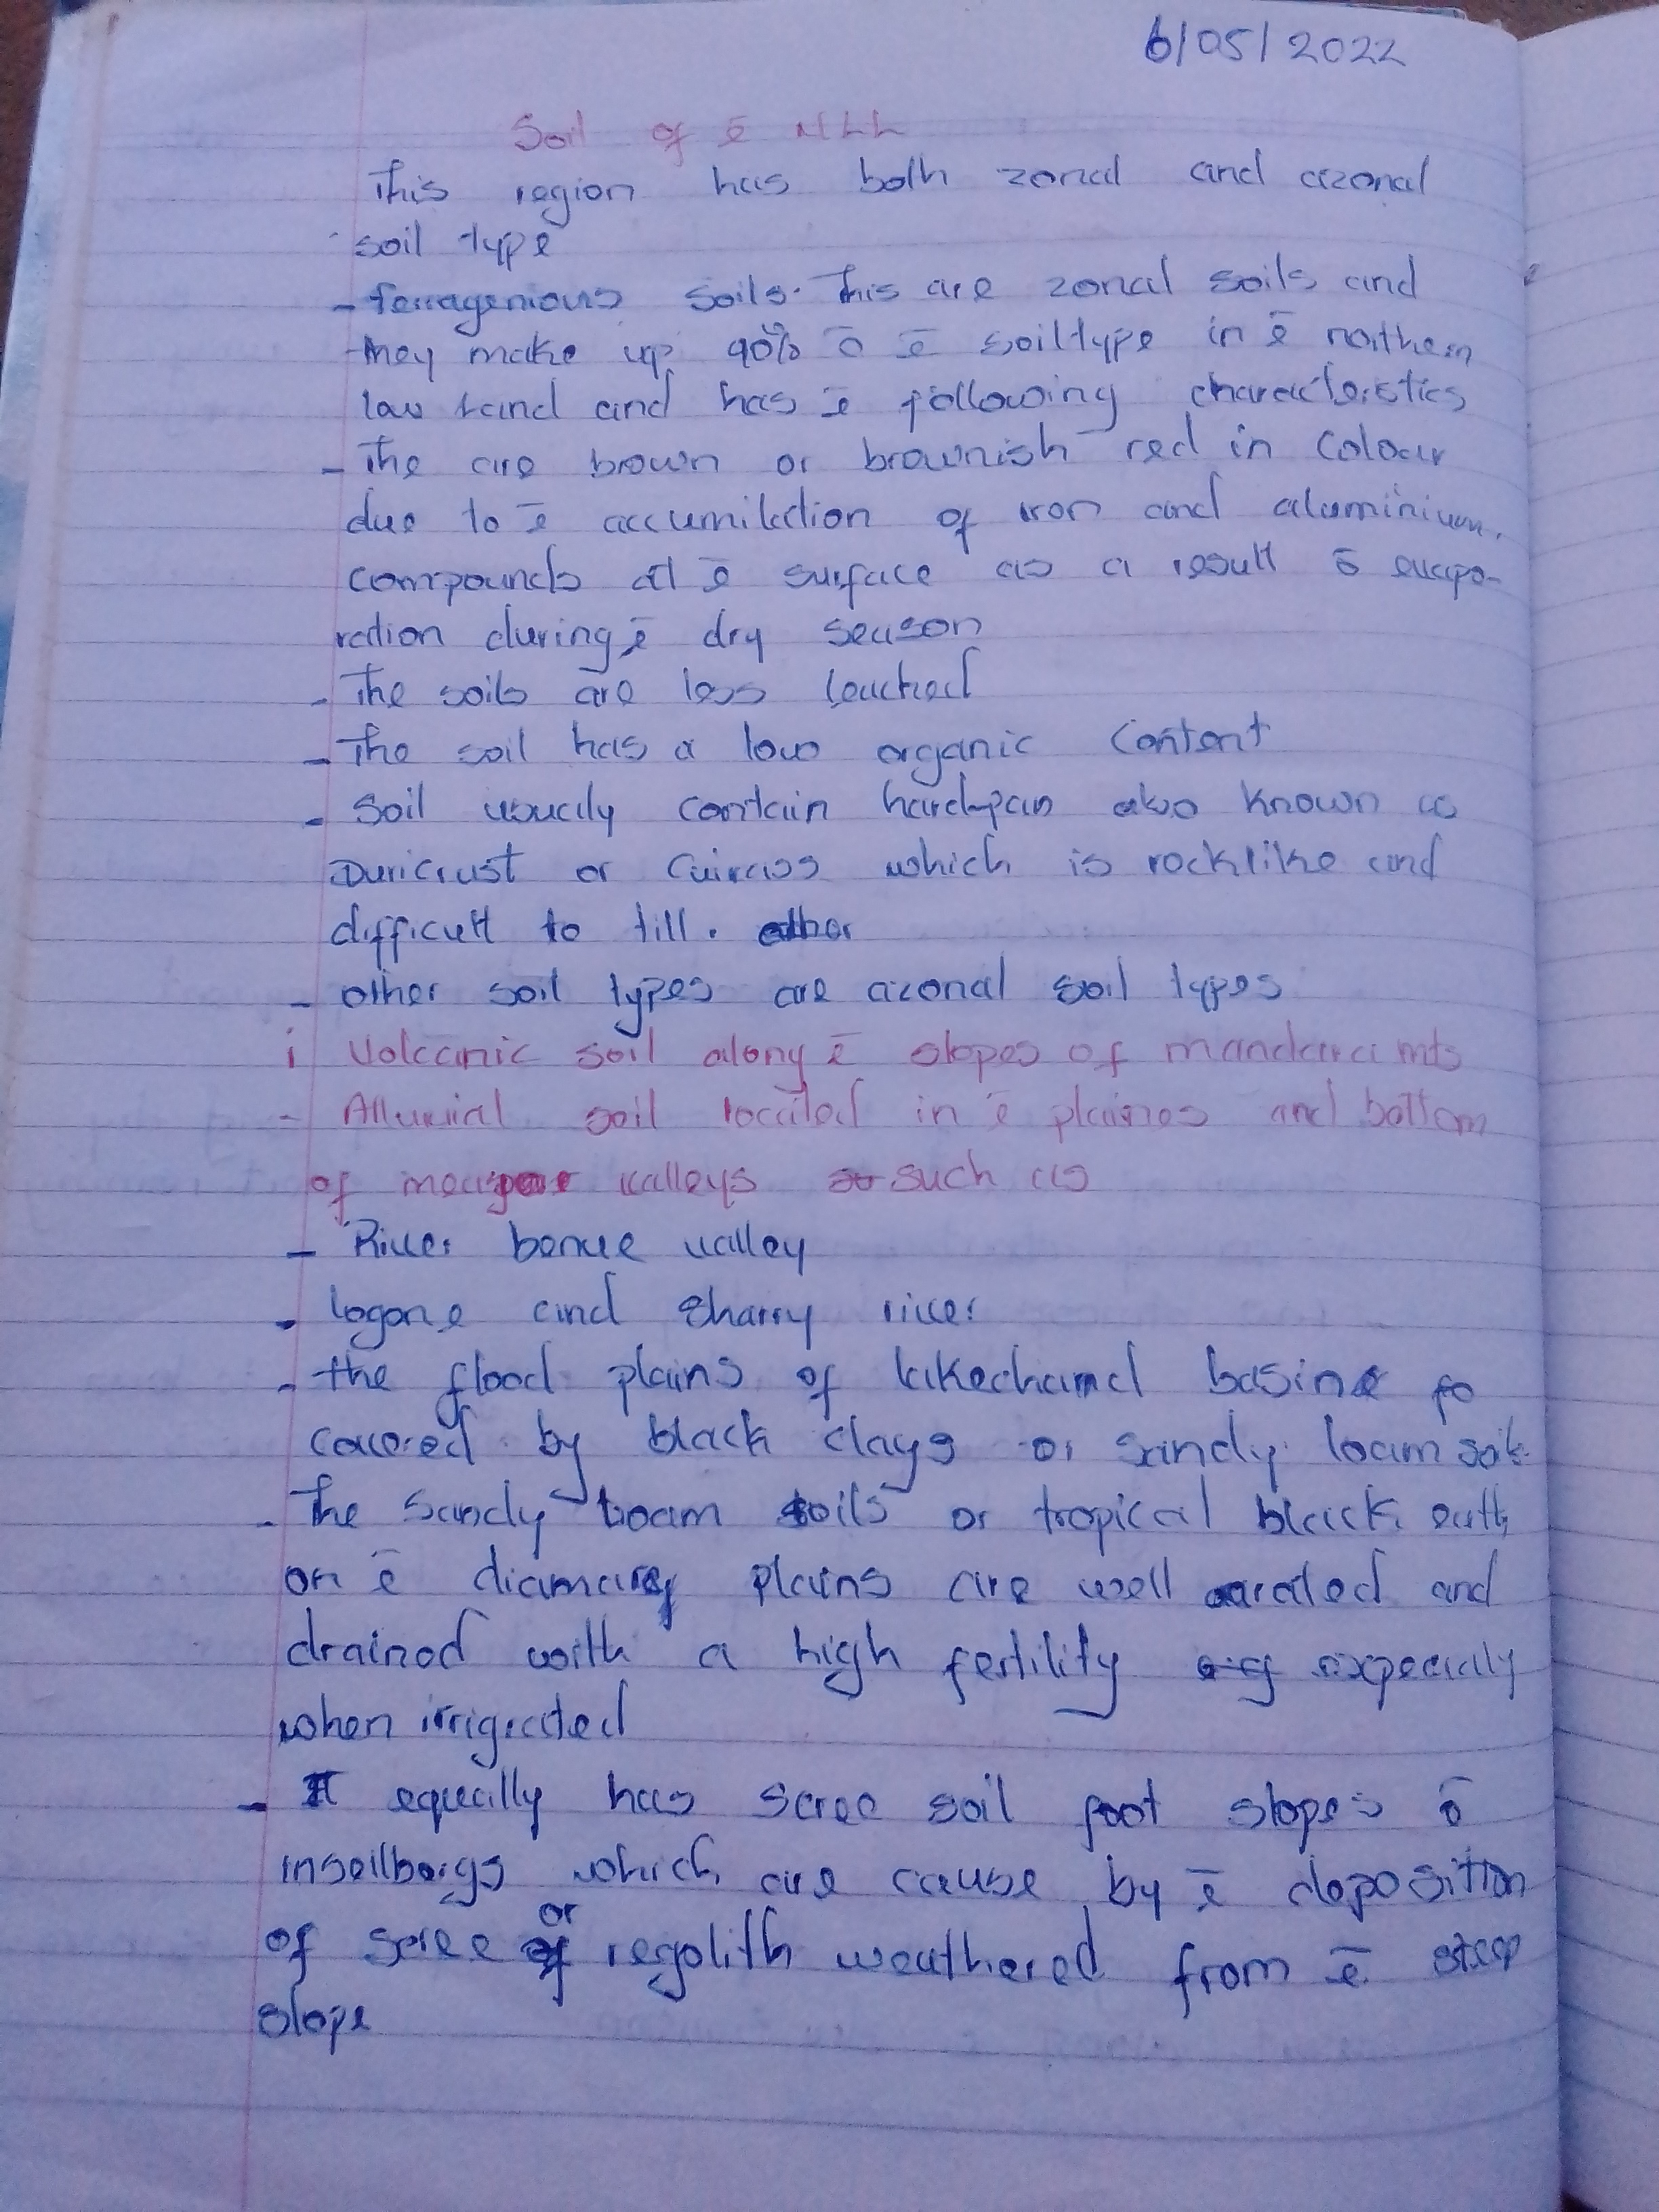 6/05/2022
Soil of ē NLL
This region has both zonal and azonal
soil type
- ferragenious soils. This are zonal soils and
they make up 90% ō ē soil type in ē northern
low land and has ē following characteristics
- The are brown or brownish red in Colour
due to ē accumilation of iron and aluminium.
compounds at ē surface as a result ō evapo-
ration during ē dry season
- The soils are less leached
- The soil has a low organic Content
- Soil usually contain hardpan also known as
Duricrust or Cuirass which is rocklike and
difficult to till.
- other soil types are azonal soil types
i Volcanic soil along ē slopes of mandara mts
- Alluvial soil located in ē plaines and bottom
of valleys such as
- River benue valley
- logone and Sharry river
- the flood plains of lakechamd basine fo
covered by black clays or sandy loam soil.
- The Sandy loam soils or tropical black eath
on ē diamarey plains are well areated and
drained with a high fertility expecially
when irrigated
- It equally has scree soil foot slopes ō
inseilbergs which are cause by ē deposition
of scree or regolith weathered from ē steep
slope